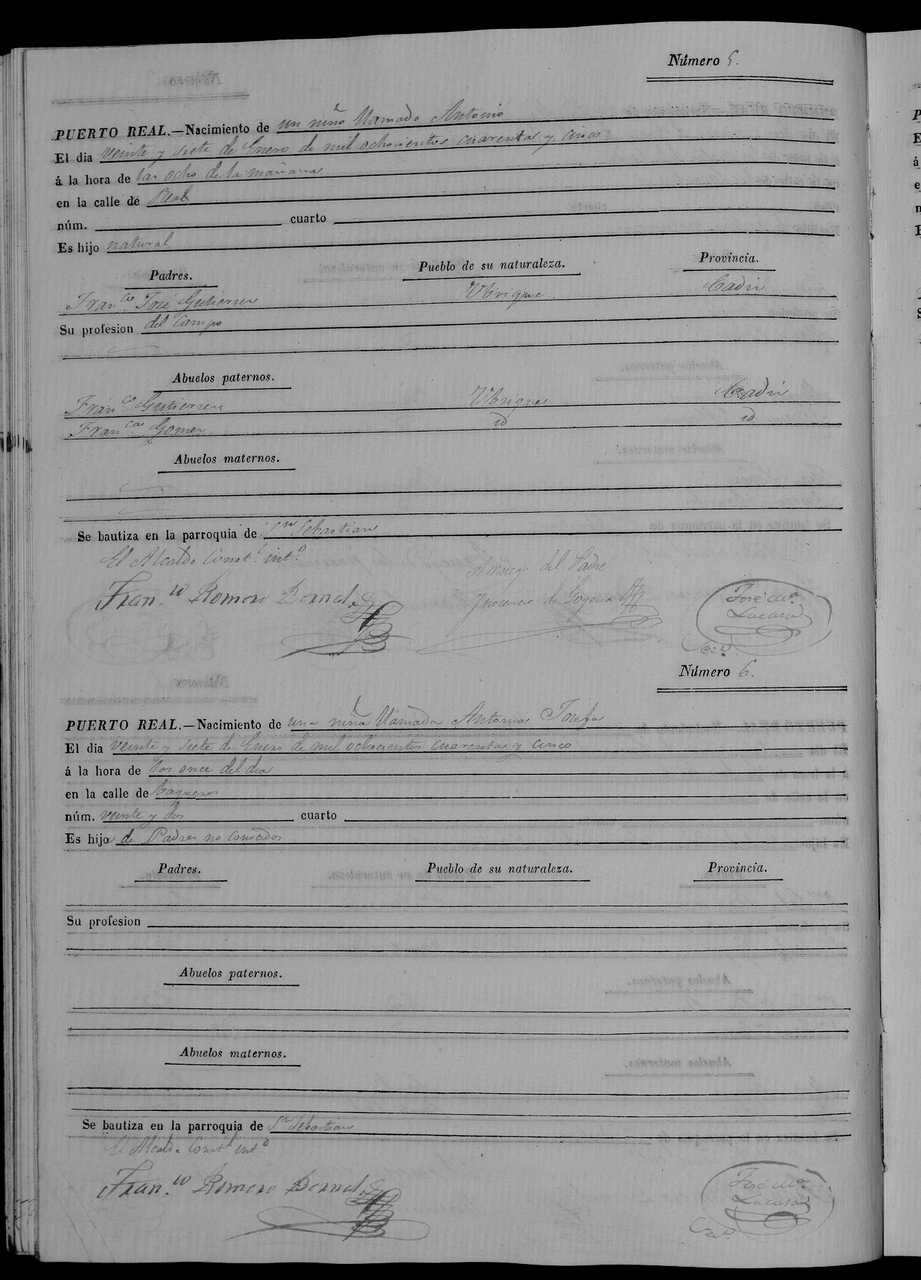 Número 5.
PUERTO REAL.—Nacimiento de un niño llamado Antonio
El dia veinte y siete de Enero de mil ochocientos cuarenta y cinco
á la hora de las ocho de la mañana
en la calle de Real
núm. cuarto
Es hijo natural
Padres. Pueblo de su naturaleza. Provincia.
Franco José Gutierrez Ubrique Cadiz
Su profesion del Campo
Abuelos paternos.
Franco Gutierrez Ubrique Cadiz
Franca Gomez id id
Abuelos maternos.
Se bautiza en la parroquia de Sn Sebastian
El Alcalde Const.l int.o
del Padre
Fran.co Romero Bernal
José de
Número 6.
PUERTO REAL.—Nacimiento de una niña llamada Antonia Josefa
El dia veinte y siete de Enero de mil ochocientos cuarenta y cinco
á la hora de las once del dia
en la calle de Vaqueros
núm. veinte y dos cuarto
Es hija de Padres no conocidos
Padres. Pueblo de su naturaleza. Provincia.
Su profesion
Abuelos paternos.
Abuelos maternos.
Se bautiza en la parroquia de Sn Sebastian
El Alcalde Const.l int.o
Fran.co Romero Bernal
José de